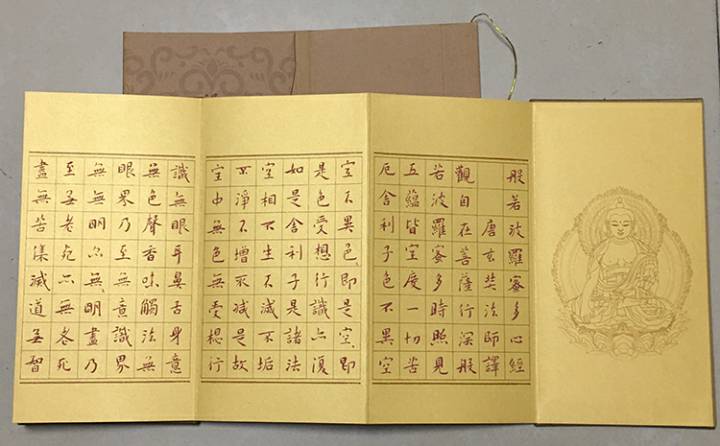 般若波羅蜜多心經
唐玄奘法師譯
觀自在菩薩行深般
若波羅蜜多時照見
五蘊皆空度一切苦
厄舍利子色不異空
空不異色、即是空、即
是色受想行識亦復
如是舍利子是諸法
空相不生不滅不垢
不淨不增不減是故
空中無色無受想行
識無眼耳鼻舌身意
無色聲香味觸法無
眼界乃至無意識界
無無明亦無明盡乃
至無老死亦無老死
盡無苦集滅道無智